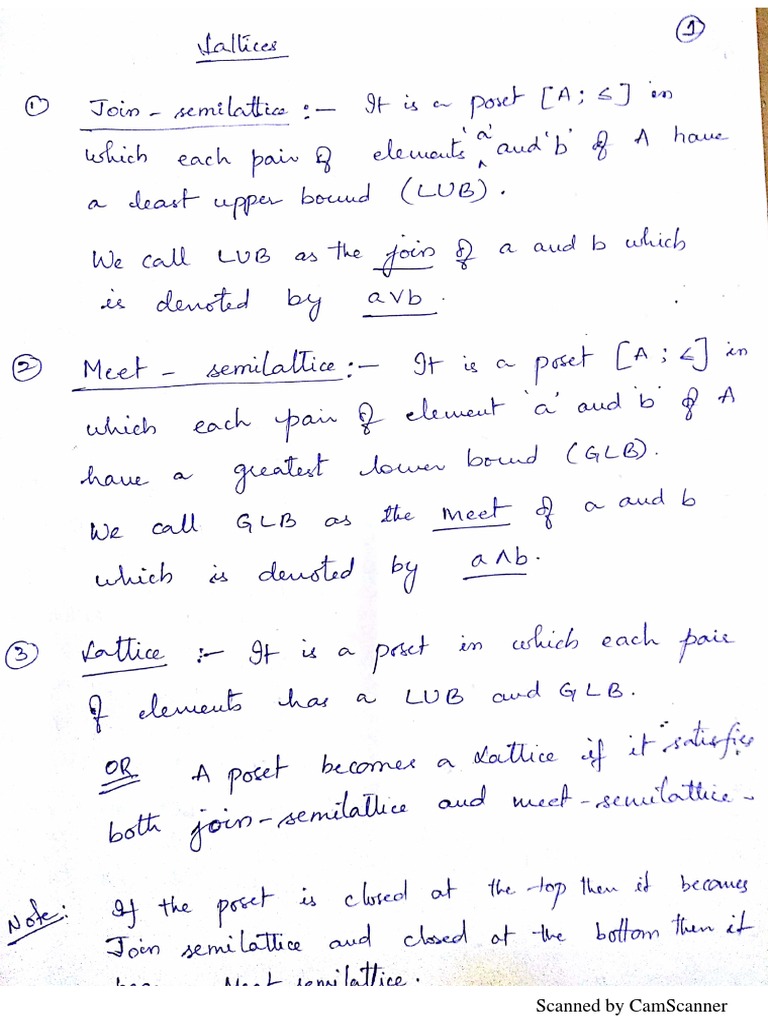 1
Lattices
1 Join - semilattice :- It is a poset [A ; ≤] in
which each pair of elements 'a' and 'b' of A have
a least upper bound (LUB).
We call LUB as the join of a and b which
is denoted by a∨b.
2 Meet - semilattice :- It is a poset [A ; ≤] in
which each pair of element 'a' and 'b' of A
have a greatest lower bound (GLB).
We call GLB as the meet of a and b
which is denoted by a∧b.
3 Lattice :- It is a poset in which each pair
of elements has a LUB and GLB.
OR A poset becomes a Lattice if it satisfies
both join-semilattice and meet-semilattice.
Note: If the poset is closed at the top then it becomes
Join semilattice and closed at the bottom then it
Meet semilattice.
Scanned by CamScanner